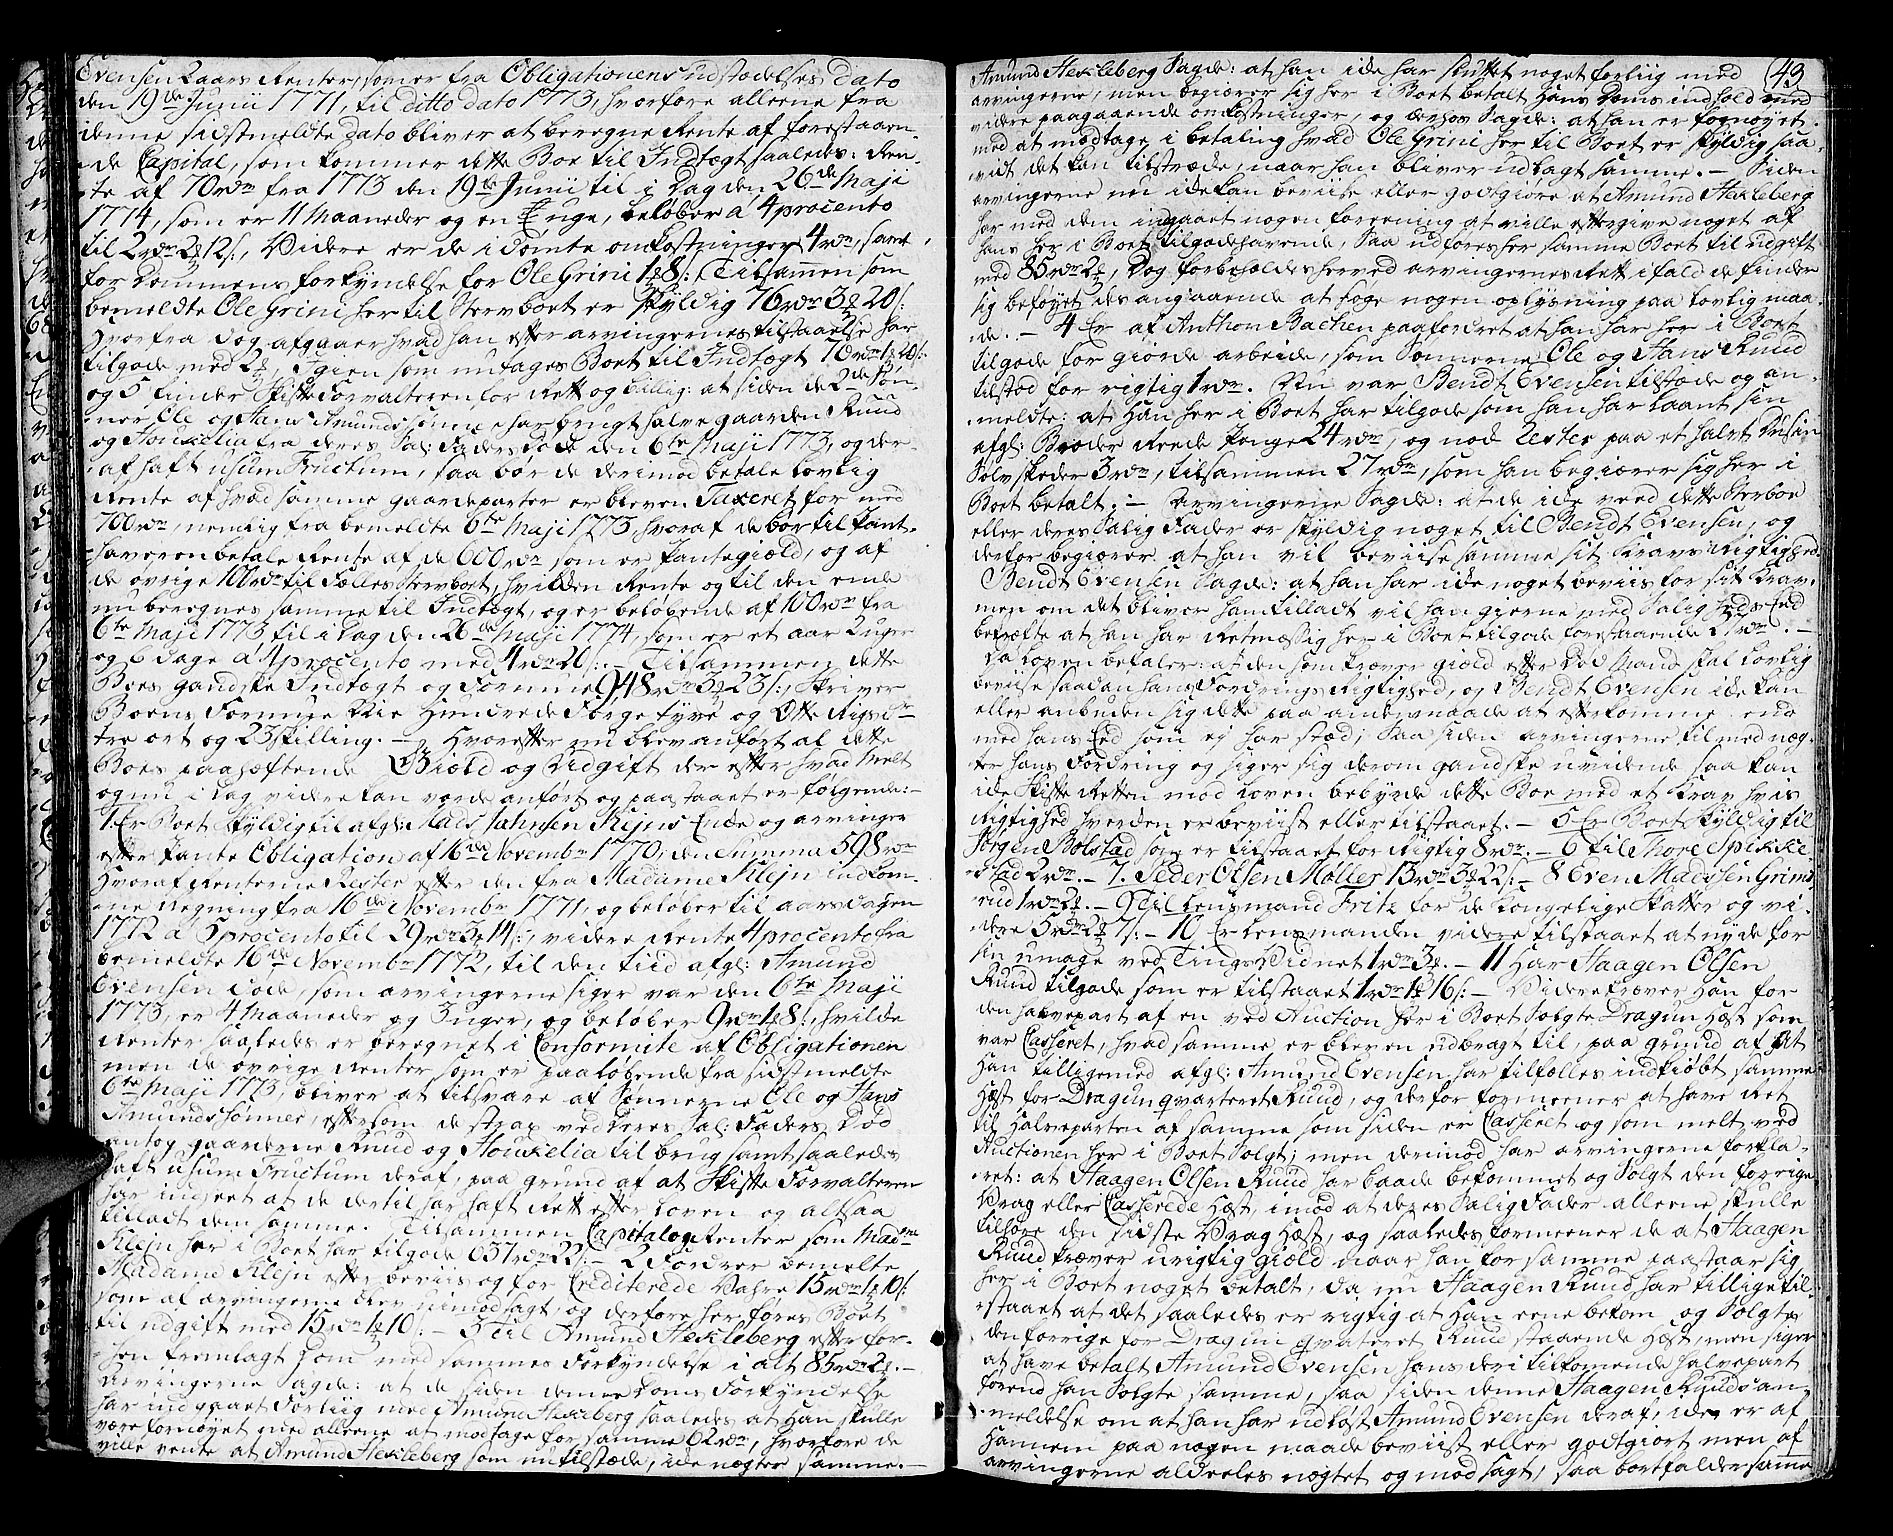 Evensen 2 aars Renter, som er fra Obligationens udstædelses dato
den 19de Junii 1771, til ditto dato 1773, hvorfore alleene fra
denne sidstmeldte dato bliver at beregne Rente af forestaaen-
de Capital, som kommer dette Boe til Indtægt saaledes: Ren-
te af 70 rdr fra 1773 den 19de Junii til i Dag den 26de Maji
1774, som er 11 Maaneder og en Uge, beløber á 4 procento
til 2 rdr 2 12 s:, Videre er de idømte omkostninger 4 rdr, samt
for Dommens forkyndelse for Ole Grini 1 8 s: Tilsammen som
bemeldte Ole Grini her til Stervboet er skyldig 76 rdr 3 20 s:
Hvorfra dog afgaaer hvad han efter arvingernes tilstaaelse har
tilgode med 2, Igien som nu tages Boet til Indtægt 70 rdr 1 20 s:
og 5 finder Skifte Forvalteren for Rett og billig: at siden de 2de Søn-
ner Ole og Hans Amunds sønner har brugt halve gaarden Ruud
og Houkelia fra deres Sal: Faders død den 6te Maji 1773, og der-
af haft usum Fructum, saa bør de derimod betale lovlig
Rente af hvad samme gaardeparter er bleven Taxeret for med
700 rdr, nemlig fra bemeldte 6te Maji 1773, hvoraf de bør til Pant-
haveren betale Rente af de 600 rdr som er Pantegiæld, og af
de øvrige 100 rdr til Fælles Stervboet, hvilken Rente og til den ende
nu beregnes samme til Indtægt, og er beløbende af 100 rdr fra
6te Maji 1773 til i Dag den 26de Maji 1774, som er et aar 2 uger
og 6 dage á 4 procento med 4 rdr 20 s:. – Tilsammen dette
Boes gandske Indtægt og Formue 948 rdr 3 23 s:, Skriver
Boens Formue Nie Hundrede Førgetyve og Otte Rigsd-
tre ort og 23 skilling. – Hvorefter nu blev anført al dette
Boes paahæftende Giæld og Udgift der efter hvad melt
og nu i Dag videre kan vorde anført og paastaaet er følgende: –
1. Er Boet skyldig til afgl: Mads Jahnsen Kliins Enke og arvinger
efter Pante Obligation af 16de Novembr 1770, den Summa 598 rdr
Hvoraf Renterne Rester efter den fra Madame Klejn indkom-
ne Regning fra 16de Novembr 1771, og beløber til aarsdagen
1772 á 5 procento til 29 rdr 3 14 s:, videre Rente 4 procento fra
bemeldte 16de Novembr 1772, til den tiid afgl: Amund
Evensen døde, som arvingerne siger var den 6te Maji
1773, er 4 Maaneder og 3 uger, og beløber 9 rdr 1 8 s:, hvilke
Renter saaledes er beregnet i Conformite af Obligationen
men de øvrige Renter som er paaløbende fra sidstmeldte
6te Maji 1773, bliver at tilsvare af Sønnerne Ole og Hans
Amunds Sønner, eftersom de strax ved deres Sal: Faders Død
antog gaarderne Ruud og Houkelia til brug samt saaledes
haft usum Fructum deraf, paa grund af at Skifte Forvalteren
har indseet at de dertil har haft Rett efter loven og altsaa
tilladt dem samme. Tilsammen Capital og Renter som Madme
Klejn her i Boet har tilgode 637 rdr 22 s: – 2 Fordrer bemelte
Madame Klejn efter beviis og for Crediterede Vahre 15 rdr 1 10 s:
som af arvingerne blev uimodsagt, og derfore her føres Boet
til udgift med 15 rdr 1 10 s: – 3 Til Amund Hekleberg efter for-
hen fremlagt Dom med sammes Forkyndelse i alt 85 rdr 2. –
Arvingerne Sagde: at de siden denne Doms Forkyndelse
har indgaaet Forliig med Amund Hekleberg saaledes at Han skulle
være fornøyet med alleene at modtage for samme 62 rdr, hvorfore de
ville vente at Amund Hekleberg som nu tilstæde, ikke nægter samme. –
43
Amund Hekleberg Sagde: at han ikke har sluttet noget forliig med
arvingerne, men begiærer sig her i Boet betalt Hans Doms indhold med
videre paagaaende omkostninger, og derhos Sagde: at han er fornøyet
med at modtage i betaling hvad Ole Grini her til Boet er skyldig saa
vidt det kan tilstræcke, naar han bliver udlagt samme. – Siden
arvingerne nu ikke kan beviise eller godtgiøre at Amund Hekleberg
har med dem indgaaet nogen foreening at ville eftergive noget af
hans her i Boet tilgodehavende, Saa udføres her samme Boet til udgift
med 85 rdr 2, Dog forbeholdes herved arvingernes Rett i fald de finder
sig beføyet des angaaende at søge nogen oplysning paa lovlig maa-
de. – 4 Er af Anthon Bachen paafordret at han har her i Boet
tilgode for giorde arbeide, som Sønnerne Ole og Hans Ruud
tilstod for rigtig 1 rdr. Nu var Bendt Evensen tilstæde og an-
meldte: at Han her i Boet har tilgode som han har laant sin
afgl: Broder Reede Penge 24 rdr, og nok Rester paa et halvt Dusin
Sølvskeeder 3 rdr, tilsammen 27 rdr, som han begiærer sig her i
Boet betalt. – Arvingerne Sagde: at de ikke veed dette Sterboe
eller deres Salig Fader er skyldig noget til Bendt Evensen, og
derfor begiærer at han vil beviise samme sit Kravs Rigtighed.
Bendt Evensen Sagde: at han har ikke noget beviis for sit Krav,
men om det bliver ham tilladt vil han gierne med Salighds Eed
bekræfte at han har Retmæssig her i Boet tilgode forestaaende 27 rdr. –
Da Loven befaler: at den som kræver giæld efter Død Mand skal lovlig
beviise saadan hans Fordrings Rigtighed, og Bendt Evensen ikke kan
eller anbuden sig dette paa anden maade at efterkomme end
med hans Eed som ej har stæd; Saa siden arvingerne til med næg-
ter hans Fordring og siger sig derom gandske uvidende saa kan
ikke Skifte Retten mod Loven bebyrde dette Boe med et Krav hvis
Rigtighed hverken er beviist eller tilstaaet. – 5 Er Boet skyldig til
Jørgen Bolstad som er tilstaaet for Rigtig 8 rdr. – 6 til Thore Spikke-
stad 2 rdr. – 7. Peder Olsen Møller 13 rdr 3 22 s: – 8 Even Madsen Grims
rud 1 rdr 2. – 9 Til Lensmand Fritz for de kongelige Skatter og vi-
dere 5 rdr 2 7 s: – 10 Er Lensmanden videre tilstaaet at nyde for
sin umage ved Tings Vidnet 1 rdr 3. – 11 Har Haagen Olsen
Ruud tilgode som er tilstaaet 1 rdr 1 16 s: – Videre kræver Han for
den halvepart af en ved Auction her i Boet Solgte Dragun Hæst som
var Casseret, hvad samme er bleven udbragt til, paa grund af at
Han tilligemed afgl: Amund Evensen har tilfælles indkiøbt samme
Hæst for Dragunqvarteret Ruud, og derfor formeener at have Ret
til Halveparten af samme som siden er Casseret og som melt ved
Auctionen her i Boet Solgt; men derimod har arvingerne forkla-
ret: at Haagen Olsen Ruud har baade bekommet og Solgt den forrige
Vrag eller Casserede Hæst, imod at deres Salig Fader alleene skulle
tilhøre den sidste Vrag Hæst, og saaledes formeener de at Haagen
Ruud kræver urigtig giæld naar han for samme paastaar sig
her i Boet noget betalt, Da nu Haagen Ruud har tillige til-
staaet at det saaledes er rigtig at Han eene bekom og Solgte
den forrige for Dragun qvarteret Ruud staaende Hæst, men siger
at have betalt Amund Evensen hans deri tilkomende halvepart
førend han Solgte samme, saa siden denne Haagen Ruuds an-
meldelse om at han har udløst Amund Evensen deraf, ikke er af
Hannem paa nogen maade beviist eller godtgiort men af
arvingerne aldeeles nægtet og modsagt, saa bortfalder samme